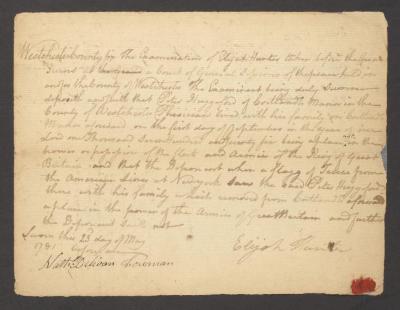 Westchester County for The Examination of Elijah Hunter taken before the Grand
Jurors at a Court of General Sessions of the peace held in
and for the County of Westchester The Examinant being duly Sworn
deposeth and saith that Peter Huggeford of Cortlandt Manor in the
County of Westchester Physician lived with his family on Cortlandt
Manor aforesaid on the first day of September in the year of our
Lord one Thousand Seven Hundred and Seventy Six being a place in the
power or possession of the fleets and Armies of the King of Great
Britain and that the Deponent when a flagg of Truce from
the American Lines at New york Saw the said Peter Huggeford
there with his family which removed from Cortlandt aforesaid
a place in the power of the Armies of Great Britain and further
the Deponent Saith not
Sworn this 23d day of May
1781 before
Elijah Hunter
Nathl Delivan Foreman